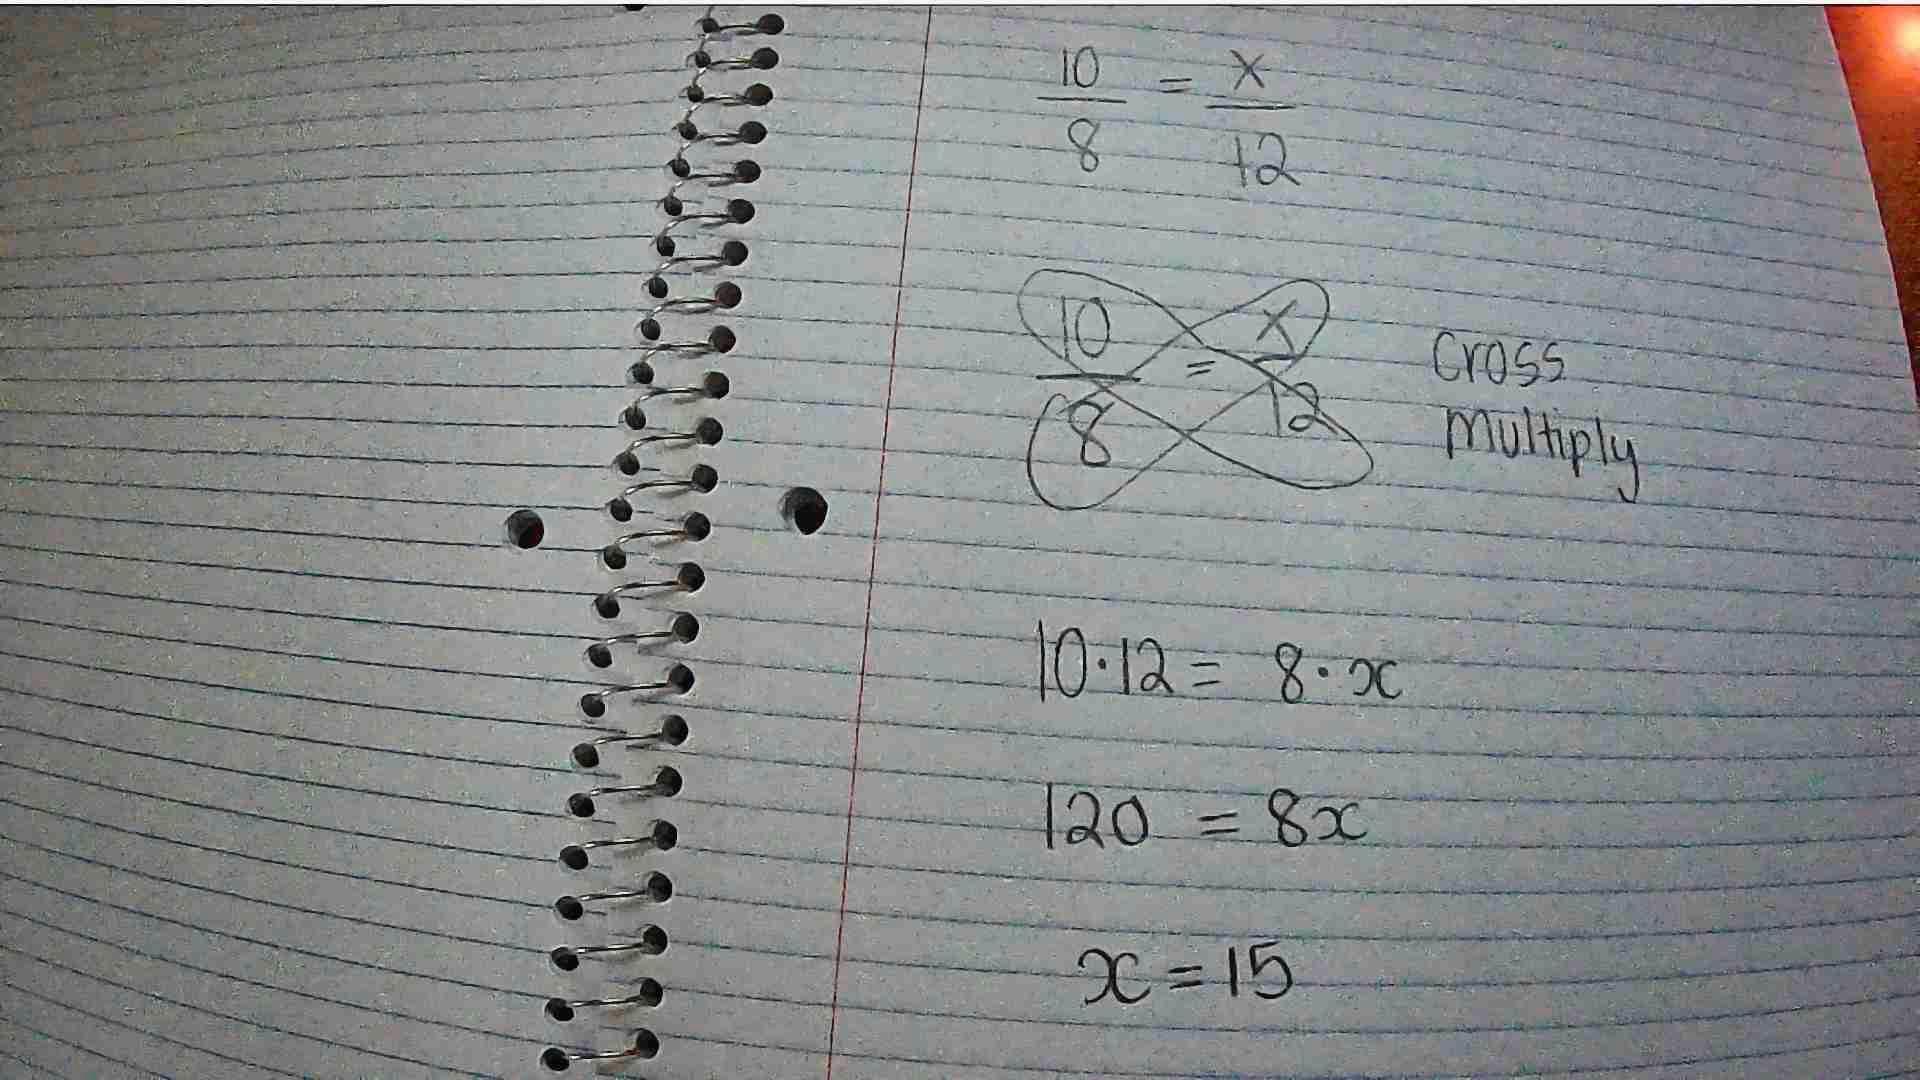 10/8 = x/12
10/8 = x/12 Cross
Multiply
10·12 = 8·x
120 = 8x
x = 15